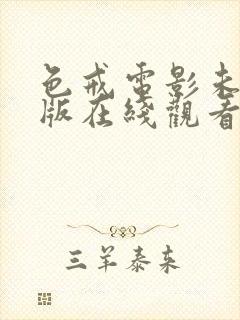 色戒電影未
版在綫觀看
三羊泰来